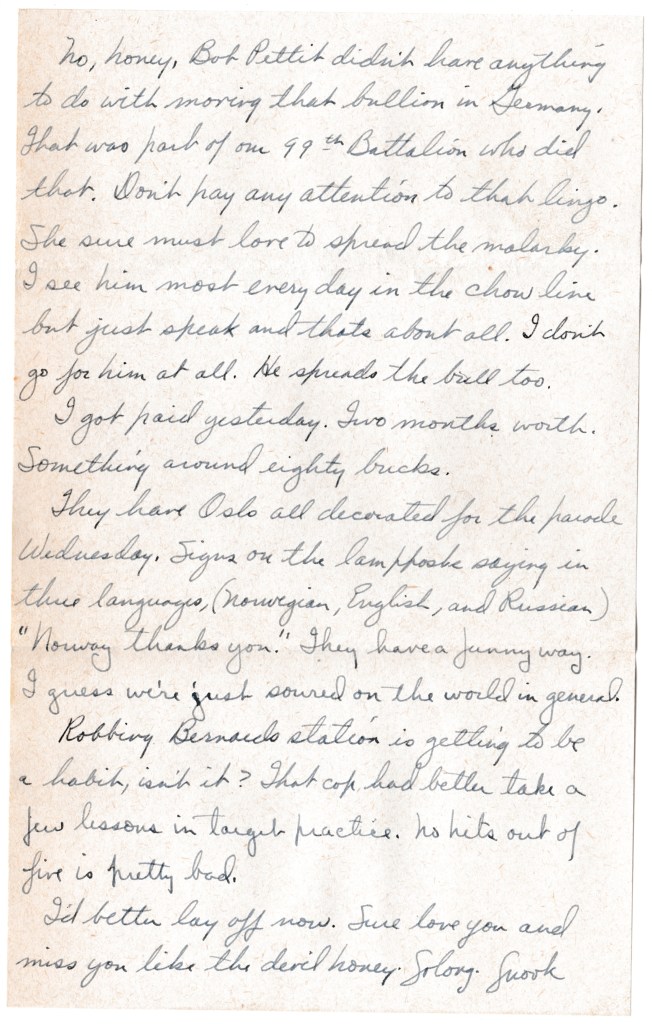 No, honey, Bob Pettit didn't have anything
to do with moving that bullion in Germany.
That was part of our 99th Battalion who did
that. Don't pay any attention to that lingo.
She sure must love to spread the malarky.
I see him most every day in the chow line
but just speak and thats about all. I don't
go for him at all. He spreads the bull too.
I got paid yesterday. Two months worth.
Something around eighty bucks.
They have Oslo all decorated for the parade
Wednesday. Signs on the lampposts saying in
three languages, (Norwegian, English, and Russian)
"Norway thanks you." They have a funny way.
I guess we're just soured on the world in general.
Robbing Bernards station is getting to be
a habit, isn't it? That cop had better take a
few lessons in target practice. No hits out of
five is pretty bad.
I'd better lay off now. Sure love you and
miss you like the devil honey. Solong. Snook